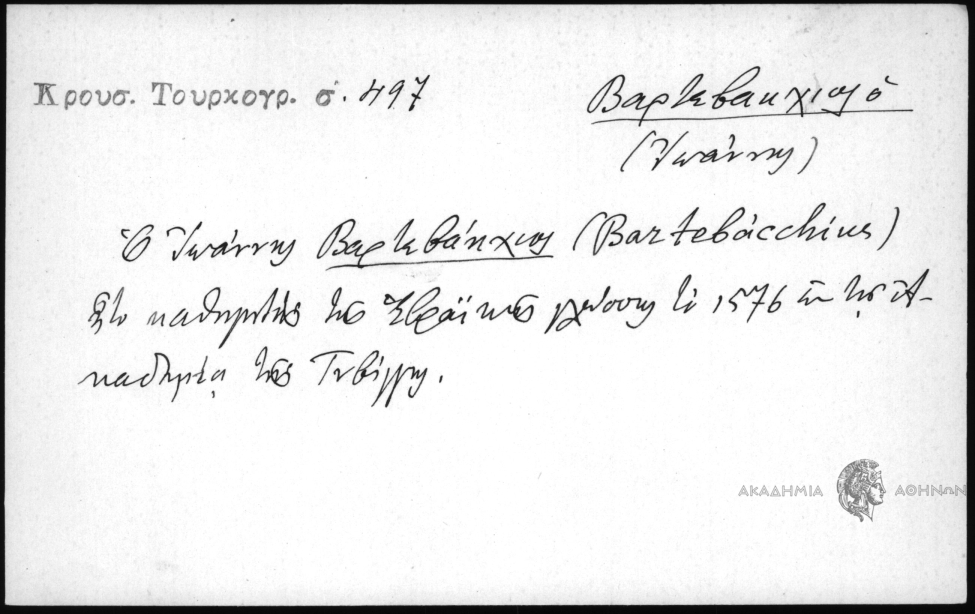 Κρουσ. Τουρκογρ. σ. 497
Βαρτεβακχιος ὁ
(Ἰωάννης)
Ὁ Ἰωάννης Βαρτεβάκχιος (Bartebácchius)
ἦτο καθηγητὴς τῆς Ἑβραϊκῆς γλώσσης τὸ 1576 ἐν τῇ Ἀ-
καδημίᾳ τῆς Τυβίγγης.
ΑΚΑΔΗΜΙΑ ΑΘΗΝΩΝ